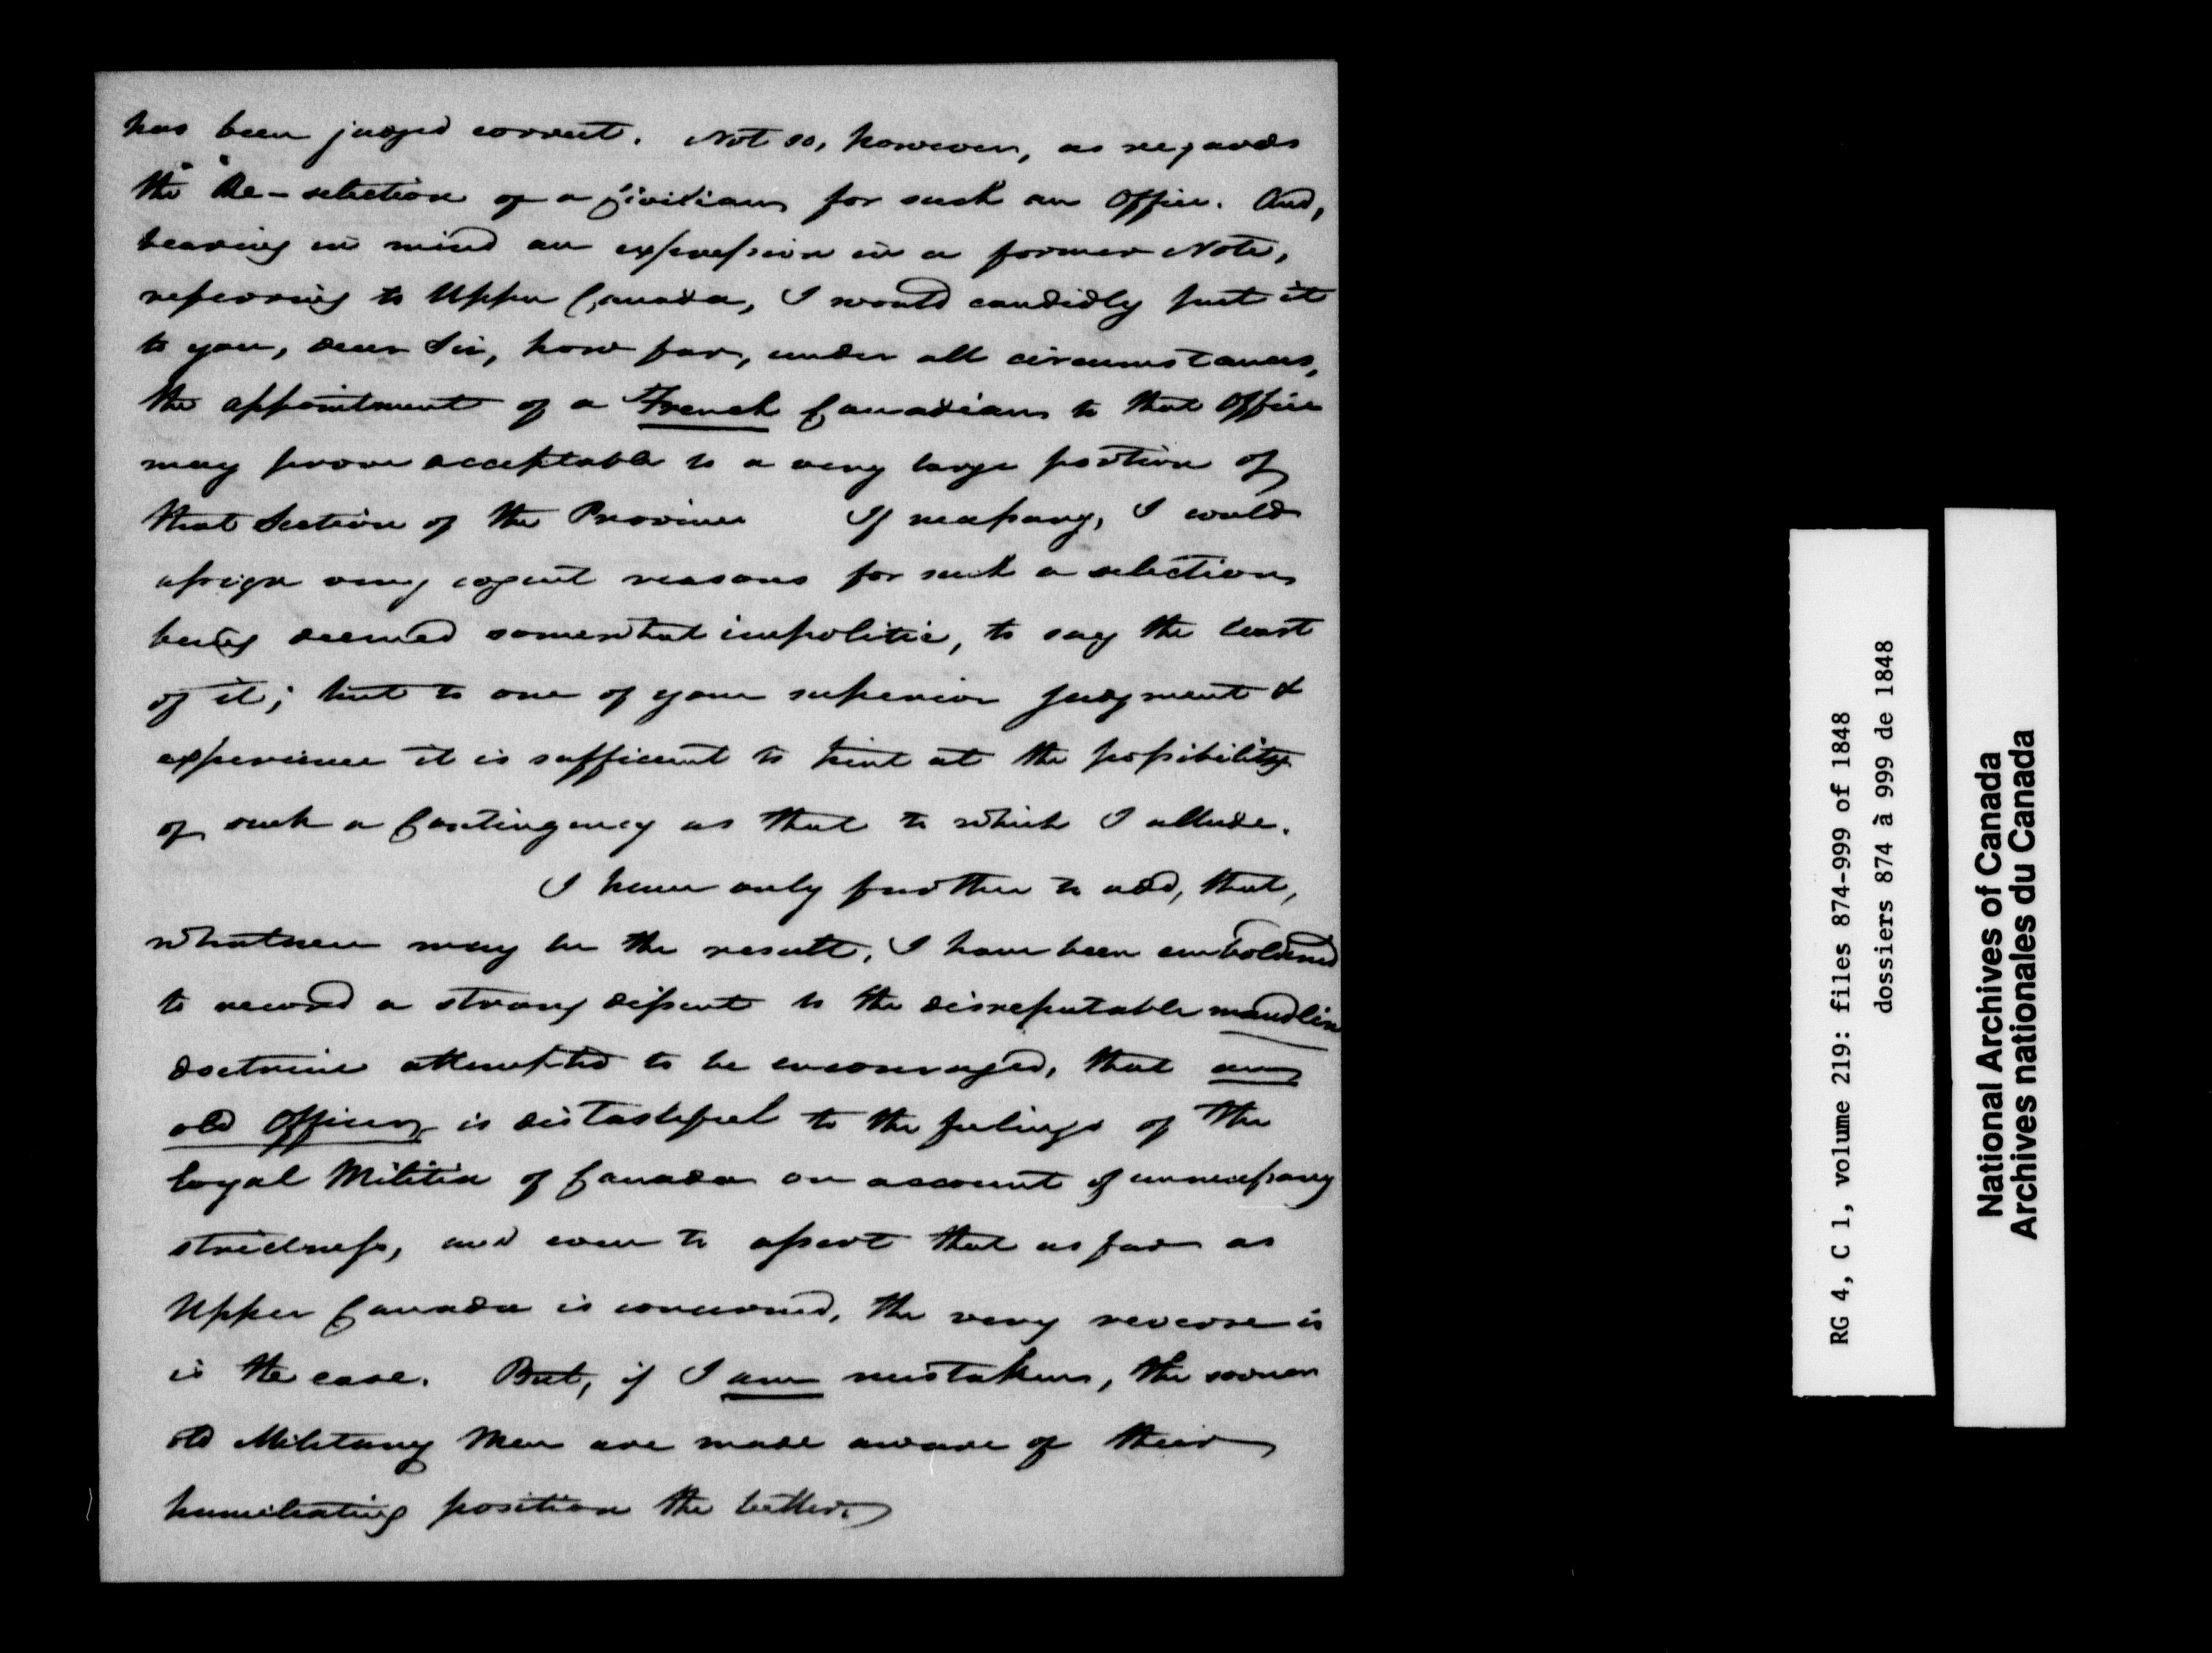 has been judged correct. Not so, however, as regards
the Re-selection of a Civilian for such an Office. And,
bearing in mind an expression in a former Note,
referring to Upper Canada, I would candidly put it
to you, dear Sir, how far, under all circumstances,
the appointment of a French Canadian to that Office
may prove acceptable to a very large portion of
that Section of the Province If necessary, I could
assign very cogent reasons for such a selection
being deemed somewhat impolitic, to say the least
of it; but to one of your superior judgment &
experience it is sufficient to hint at the possibility
of such a Contingency as that to which I allude.
I have only further to add, that,
whatever may be the result, I have been emboldened
to record a strong dissent to the disreputable maudlin
doctrine attempted to be encouraged, that any
old Officer is distasteful to the feelings of the
loyal Militia of Canada on account of unnecessary
strictness, and even to assert that as far as
Upper Canada is concerned, the very reverse is
is the case. But, if I am mistaken, the sooner
old Military Men are made aware of their
humiliating position the better.
RG 4, C 1, volume 219: files 874-999 of 1848
dossiers 874 à 999 de 1848
National Archives of Canada
Archives nationales du Canada